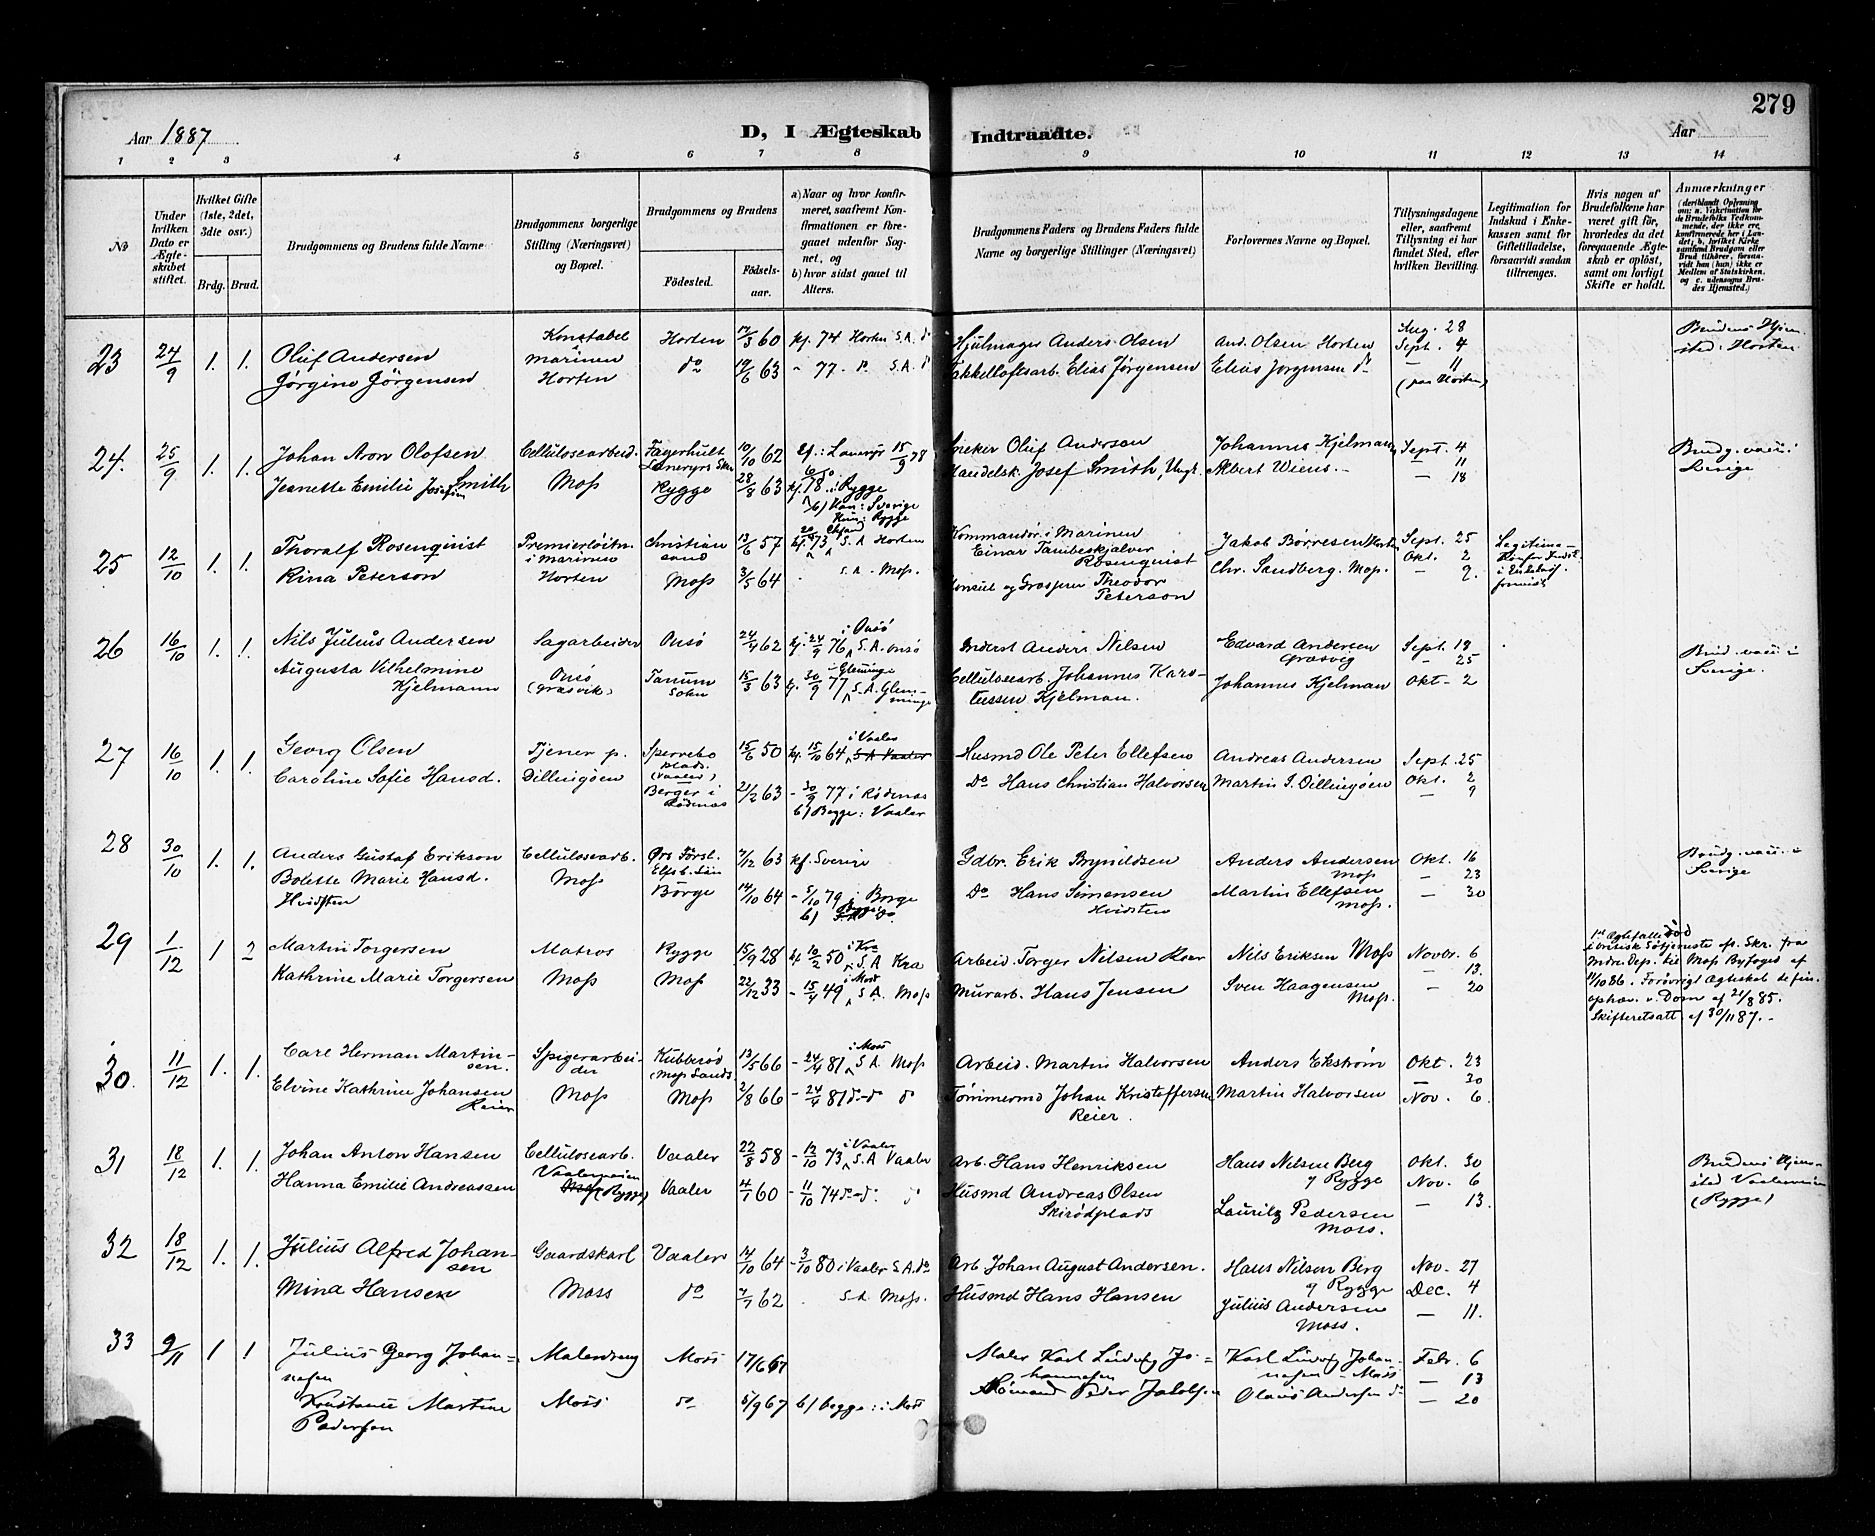 279
Aar 1887
D, I Ægteskab Indtraadte.
Aar
1 2 3 4 5 6 7 8 9 10 11 12 13 14
No
Under hvilken Dato er Ægteskabet stiftet.
Hvilket Gifte (1ste, 2det, 3die osv.)
Brdg. Brud.
Brudgommens og Brudens fulde Navne
Brudgommens borgerlige Stilling (Næringsvei) og Bopæl.
Brudgommens og Brudens
Fødested.
Fødselsaar.
a) Naar og hvor konfirmeret, saafremt Konfirmationen er foregaaet udenfor Sognet, og
b) hvor sidst gaaet til Alters.
Brudgommens Faders og Brudens Faders fulde Navne og borgerlige Stillinger (Næringsvei)
Forlovernes Navne og Bopæl.
Tillysningsdagene eller, saafremt Tillysning ei har fundet Sted, efter hvilken Bevilling.
Legitimation for Indskud i Enkekassen samt for Giftetilladelse, forsaavidt saadan tiltrænges.
Hvis nogen af Brudefolkene har været gift før, hvorledes da det foregaaende Ægteskab er opløst, samt om lovligt Skifte er holdt.
Anmærkninger (deriblandt Oplysning om: a. Vakcination for de Brudefolks Vedkommende, der ikke ere konfirmerede her i Landet; b. hvilket Kirkesamfund Brudgom eller Brud tilhører, forsaavidt han (hun) ikke er Medlem af Statskirken, og c. udensogns Brudes Hjemsted.)
23 24/9 1. 1. Oluf Andersen Konstabel i Horten 17/3 60 kf. 74 Horten S.A. do Hjulmager Anders Olsen And. Olsen Horten Aug. 28 Brudens Hjemsted: Horten
Jørgine Jørgensen marinen Horten do 19/6 63 - 77. S.A. do Takkelloftsarb. Elias Jørgensen Elias Jorgensen do Sept. 4
— 11 (paa Horten)
24. 25/9 1. 1. Johan Aron Olofsen Cellulosearbeid. Fagerhult 10/10 62 15/9 78 Oluf Anderson Johannes Kjelmann Sept. 4 Brudg. vacc. i Sverige
Jeanette Emilie Josefine Smith Moss Rygge 28/8 63 kf. 78 i Rygge Handelsk. Josef Smith, Albert Wiens. — 11
b) Han: Sverige Hun: Rygge — 18
25 12/10 1. 1. Thoralf Rosenqvist Premierløitn. i marinen Christiansand 13/6 57 73 S.A. Horten Kommandør i Marinen Einar Tambeskjelver Rosenqvist Jakob Børresen Horten Sept. 25
Rina Peterson Horten Moss 3/5 64 S.A. Moss. Konsul og Grosserer Theodor Peterson Chr. Sandberg. Moss. Okt. 2
26 16/10 1. 1. Nils Julius Andersen Sagarbeider Onsø 24/4 62 kf. 24/9 76 i Onsø S.A. Onsø Inderst Anders Nilsen Edvard Andersen Græsvig Sept. 18 Brud. vacc. i Sverige.
Augusta Vilhelmine Kjelmann Onsø (Græsvik) Tanum Sokn 15/3 63 kf. 30/9 77 i Glemminge S.A. Glemminge Cellulosearb. Johannes Karstensen Kjelman. Johannes Kjelman - 25
Okt - 2
27 16/10 1. 1. Georg Olsen Tjener p. Sperrebo plads. (Vaaler) 15/6 50 kf. 15/10 64 i Vaaler Husmd Ole Peter Ellefsen Andreas Andersen Sept. 25
Caroline Sofie Hansd. Dillingøen Berger i Rødenæs 21/2 63 - 30/9 77 i Rødenæs Do Hans Christian Halvorsen Martin J. Dillingøen Okt. 2
b) Begge: Vaaler — 9
28 30/10 1. 1. Anders Gustaf Erikson Cellulosearb. Elfsb. Län 7/12 63 kf. Sverige Gdbr. Erik Brynildsen Anders Andersen Moss Okt. 16 Brudg. vacc. i Sverige
Bolette Marie Hansd. Hvidsten Moss Borge 14/10 64 - 5/10 79 i Borge Do Hans Simensen Hvidsten Martin Ellefsen Moss. — 23
— 30
29 1/12 1 2 Martin Torgersen Matros Rygge 15/9 28 kf 10/2 50 i Kra S.A. Kra Arbeid. Torger Nilsen Nils Eriksen Moss Novbr. 6
Kathrine Marie Torgersen Moss Moss 22/12 33 - 15/4 49 i Moss S.A. Moss Murarb. Hans Jensen Sven Haagensen Moss. — 13.
— 20
1st Ægtefælle død i britisk Søtjeneste ef. Skr. fra Indre Dep. til Moss Byfoged af 11/10 86. Forøvrigt Ægteskab defin. ophæv. v. Dom af 21/8 85. Skifteretsatt. af 30/11 87. -
30. 11/12 1. 1. Carl Herman Martinsen. Spigerarbeider Kubberød (Moss Sands.) 13/5 66 - 24/4 81 i Moss S.A. Moss Arbeid. Martin Halvorsen Anders Ekstrøm Okt. 23
Elvine Kathrine Johansen Reier Moss Moss 2/8 66 - 24/4 81 do - do do Tømmermd Johan Kristoffersen Reier. Martin Halvorsen — 30
Nov. 6
31 18/12 1. 1. Johan Anton Hansen Cellulosearb. Vaaler 22/8 58 - 12/10 73 i Vaaler S.A. Vaaler Arb. Hans Henriksen Hans Nilsen Berg i Rygge Okt. 30 Brudens Hjemsted Vaalerveien (Rygge)
Hanna Emilie Andreassen Vaalerveien Moss (Rygge) Vaaler 4/1 60 - 11/10 74 do - do. do Husmd Andreas Olsen Skirødplads Lauritz Pedersen Moss. Nov. 6
— 13.
32 18/12 1. 1. Julius Alfred Johansen Gaardskarl Vaaler 14/10 64 - 3/10 80 i Vaaler S.A. do Arb. Johan August Andersen. Hans Nilsen Berg i Rygge Nov. 27
Mina Hansen Moss do 7/7 62 S.A. Moss. Husmd Hans Hansen Julius Andersen Moss. Dec. 4
— 11.
33 9/11 1 1 Julius Georg Johannesen Malersvend Moss 17/6 67 Maler Karl Ludvig Johannesen Karl Ludvig Johannesen - Moss Febr. 6
Konstance Martine Pedersen Moss do 5/9 67 b) begge: i Moss Peder Jakobsen Olaus Andersen do — 13
— 20